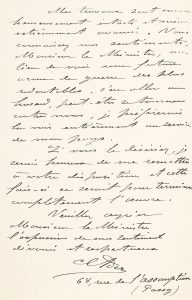 Mes travaux sont
intacts et
entièrement Vous
connaissez mes sentiments
Monsieur le Ministre,
lieu de
arme de guerre les plus
redoutables, s'en aller au
hasard, peut-être se tourner
contre nous, je préférerais
la voir entièrement au service
de mon pays.
Si vous le désiriez, je
serais heureux de me remettre
à votre disposition et cette
fois-ci ce serait pour terminer
complètement l'œuvre.
Veuillez agréer
Monsieur le Ministre
l'expression de mes sentiments
dévoués et respectueux
Ader
68, rue de l'assomption
(Passy)